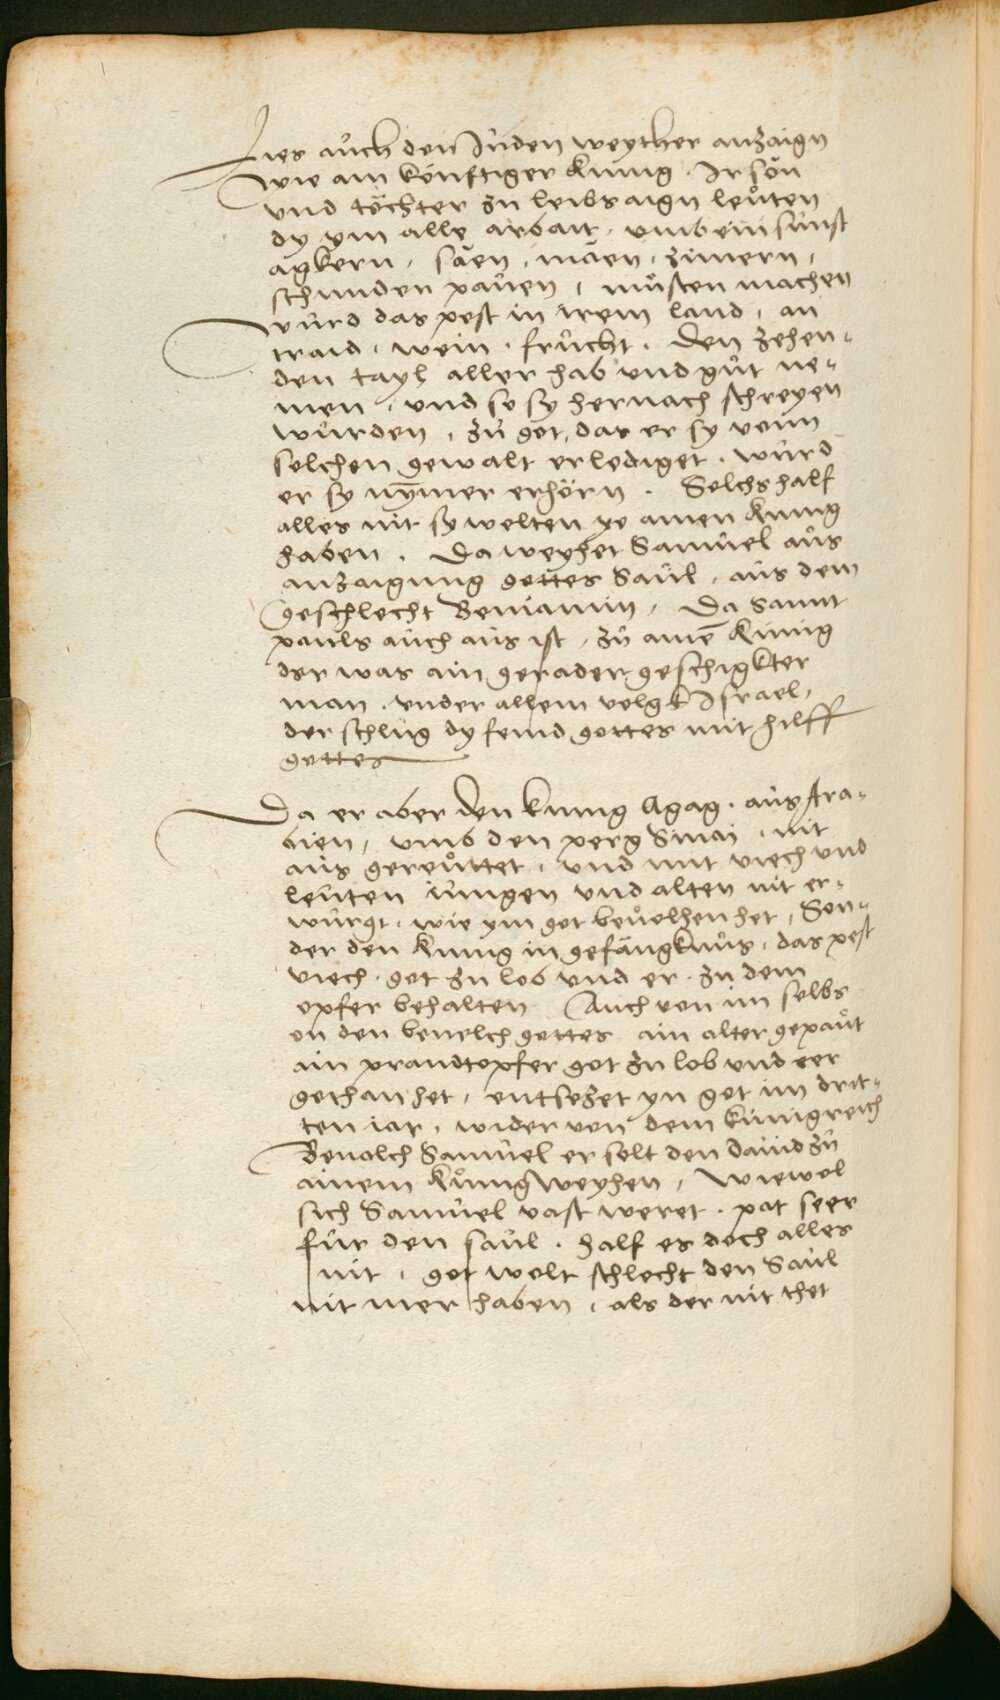 Lies auch den Juden weyther anzaign
wie ain könftiger Kunig. Ir sön
und töchter zu leibs aign leůten
dy ym alle arbait, umb ein sunst
agkern, säen, mäen, zimern,
schunden paůen, můsten machen
wurd das pest in irem land, an
traid, wein, frůcht. Den zehen-
den tayl aller hab und gůt ne-
men, und so sy hernach schreyen
wůrden, zů got, das er sy vonn
solchen gewalt erlediget. wůrd
er sy nymer erhörn. Solchs half
alles nit sy wolten ye ainen Kunig
haben. Da weyhet Samůel aůs
anzaigung gottes Saůl, aůs dem
geschlecht Beniamin, Da Sannt
paůls aůch aůs ist, zů aine Kůnig
der was ain gerader geschigkter
man. under allem volgk Israel,
der schlůg dy feind gottes mit hilff
gottes
Da er aber den kunig Agag. aůs Ara-
bien, umb den perg Sinai, nit
aůs gereůttet, und mit viech und
leůten iůngen und alten nit er-
wůrgt. wie ym got beuolhen het, Son-
der den Kunig in gefängknůs, das pest
viech. got zu lob und er. zu dem
opfer behalten Auch von im selbs
on den beuelch gottes ain alter gepaůt
ain prandtopfer got zu lob und eer
gethan het, entsezet yn got im drit-
ten iar, wider von dem kůnigreich
Beualch Samůel er solt den Dauid zů
ainem Kůnig weyhen, Wiewol
sich Samůel vast weret. pat seer
fůr den saůl. half es doch alles
nit, got wolt schlecht den Saůl
nit mer haben, als der nit thet